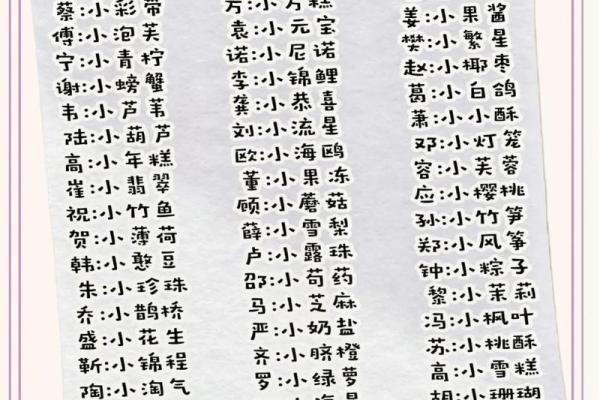 蔡:小彩带
傅:小泡芙
宁:小青柠
谢:小螃蟹
韦:小芦苇
陆:小葫芦
高:小年糕
崔:小翡翠
祝:小竹鱼
贺:小薄荷
韩:小憨豆
朱:小珍珠
乔:小鹊桥
盛:小花生
靳:小锦程
陶:小淘气
方:小方糕
袁:小元宝
诺:小尼诺
李:小锦鲤
龚:小恭喜
刘:小流星
欧:小海鸥
董:小果冻
顾:小蘑菇
薛:小雪梨
卢:小露珠
邵:小苟药
马:小芝麻
严:小奶盐
齐:小脐橙
罗:小绿萝
姜:小果酱
樊:小繁星
赵:小椰枣
葛:小白鸽
萧:小小酥
邓:小灯笼
容:小芙蓉
应:小樱桃
孙:小竹笋
郑:小风筝
钟:小粽子
黎:小茉莉
冯:小枫叶
苏:小桃酥
高:小雪糕
胡:小珊瑚